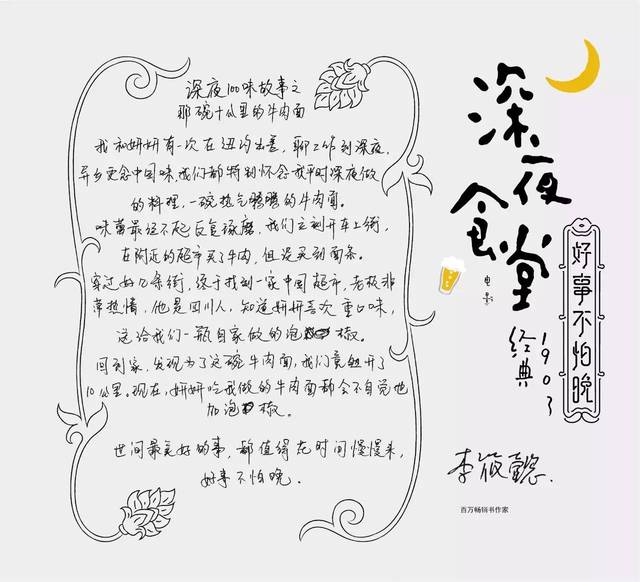 深夜100味故事之
那碗十公里的牛肉面
我和妍妍有一次在纽约出差，聊工作到深夜，
异乡更念中国味，我们都特别怀念我平时深夜做
的料理，一碗热气腾腾的牛肉面。
味蕾最经不起反复琢磨，我们立刻开车上街，
在附近的超市买了牛肉，但没买到面条。
穿过好几条街，终于找到一家中国超市，老板非
常热情，他是四川人，知道妍妍喜欢重口味，
送给我们一瓶自家做的泡椒。
回到家，发现为了这碗牛肉面，我们竟然开了
10公里。现在，妍妍吃我做的牛肉面都会不自觉地
加泡椒。
世间最美好的事，都值得花时间慢慢来，
好事不怕晚。
深夜食堂
电影
经典1903
好事不怕晚
李筱懿
百万畅销书作家